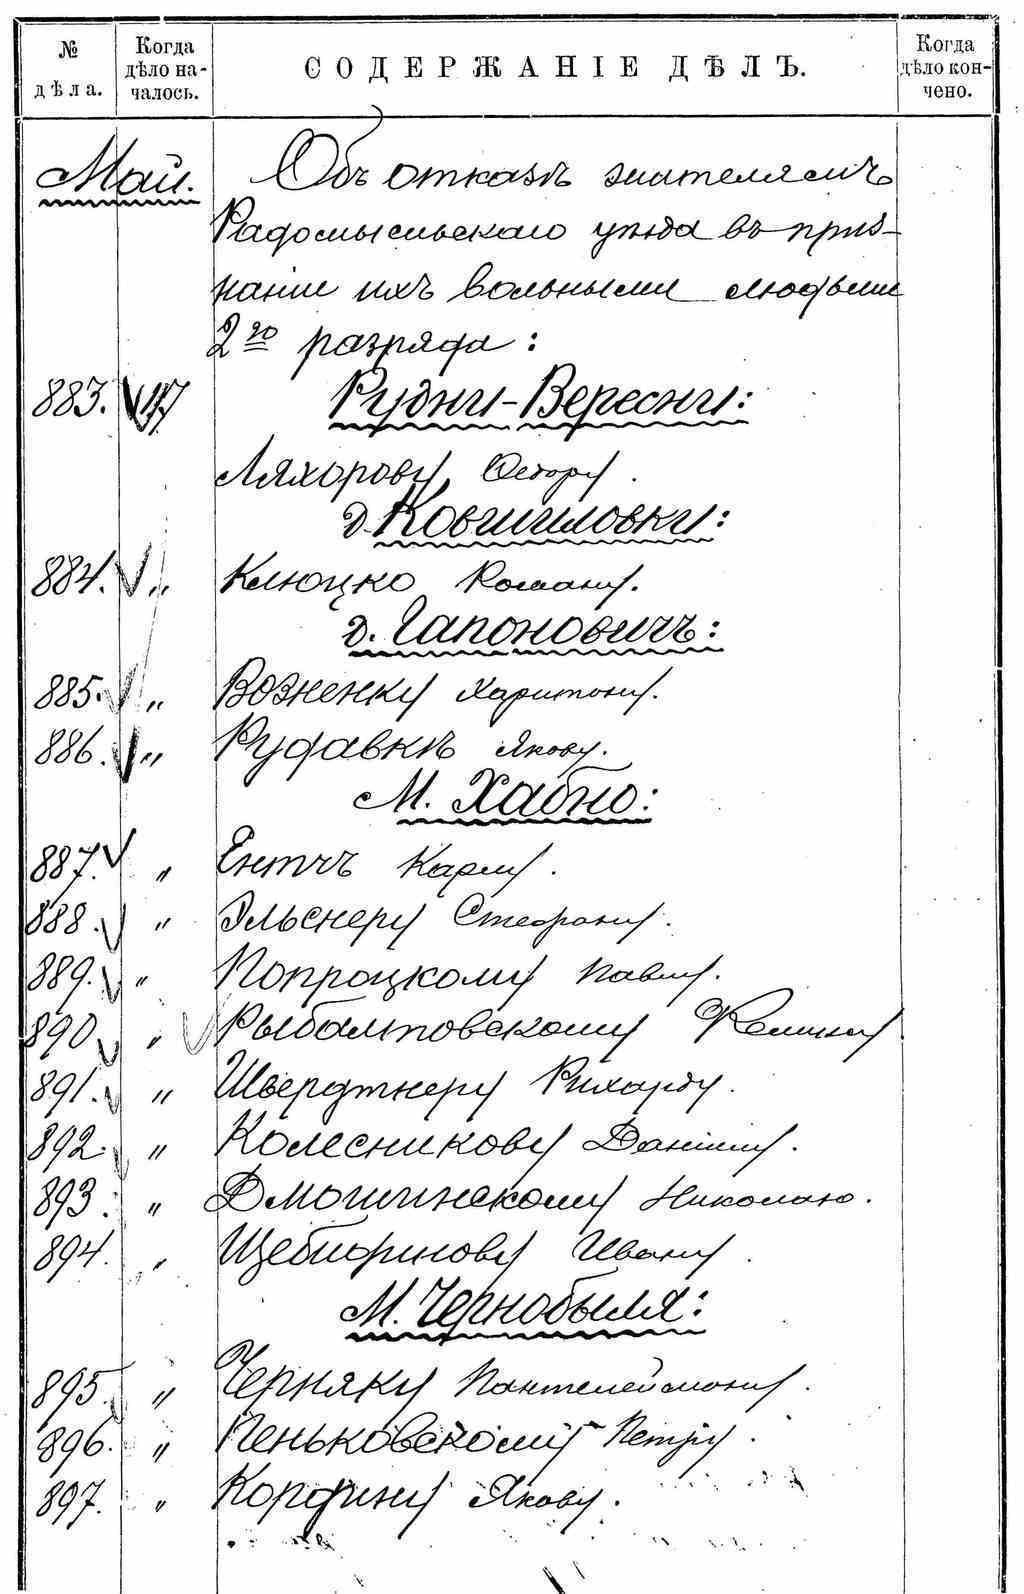 № дѣла. Когда дѣло началось. СОДЕРЖАНІЕ ДѢЛЪ. Когда дѣло кончено.
Май. Объ отказѣ жителямъ
Радомысльскаго уѣзда въ приз-
наніи ихъ вольными людьми
2го разряда:
883. 17 Рудни-Вересни:
Ляхорову Федору.
д. Ковшиловки:
884. " Клюцко Роману.
д. Гапоновичъ:
885. " Возненку Харитону.
886. " Рудавкѣ Якову.
М. Хабно:
887. " Ентчъ Карлу.
888. " Эльснеру Стефану.
889. " Попроцкому Павлу.
890 "
891. " Рихарду.
892. " Колесникову Даніилу.
893. " Николаю.
894. " Ивану.
М. Чернобыля:
895. " Черняку Пантелеймону.
896. " Пеньковскому Петру.
897. " Кордину Якову.